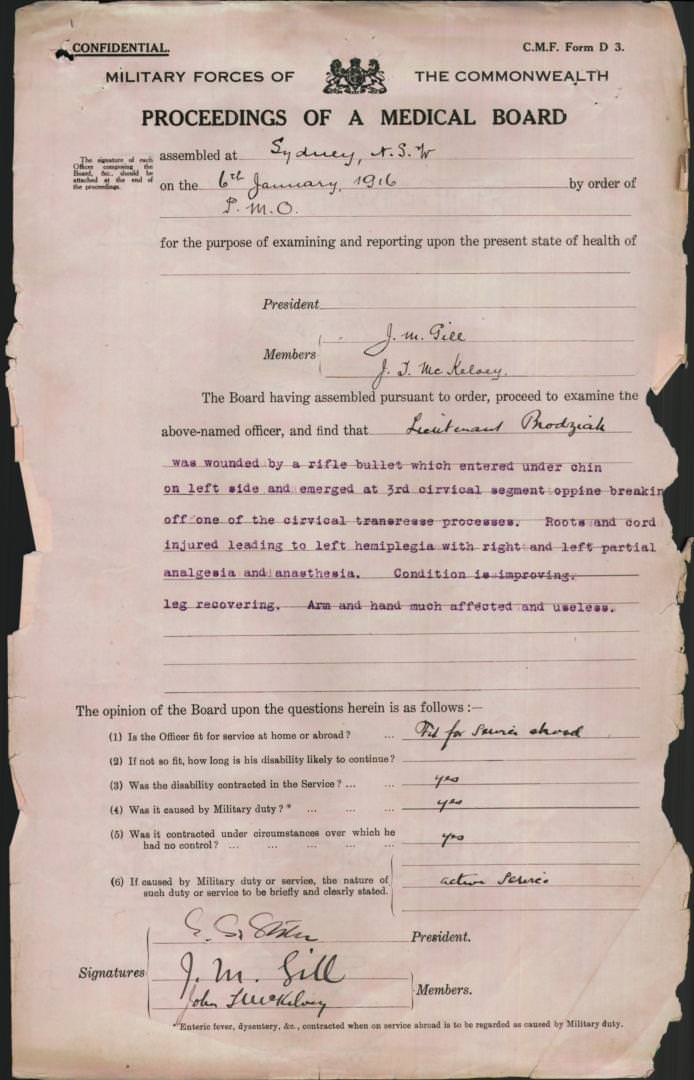 CONFIDENTIAL.
C.M.F. Form D 3.
MILITARY FORCES OF THE COMMONWEALTH
PROCEEDINGS OF A MEDICAL BOARD
The signature of each
Officer composing the
Board, &c., should be
attached at the end of
the proceedings.
assembled at Sydney, N.S.W
on the 6th January, 1916 by order of
P.M.O.
for the purpose of examining and reporting upon the present state of health of
President
Members
J. M. Gill
J. T. McKelvey.
The Board having assembled pursuant to order, proceed to examine the
above-named officer, and find that Lieutenant Brodziak
was wounded by a rifle bullet which entered under chin
on left side and emerged at 3rd cirvical segment oppine breakin
off one of the cirvical transresse processes. Roots and cord
injured leading to left hemiplegia with right and left partial
analgesia and anasthesia. Condition is improving.
leg recovering. Arm and hand much affected and useless.
The opinion of the Board upon the questions herein is as follows :—
(1) Is the Officer fit for service at home or abroad? ... Fit for Service abroad
(2) If not so fit, how long is his disability likely to continue?
(3) Was the disability contracted in the Service? ... ... yes
(4) Was it caused by Military duty? * ... ... ... yes
(5) Was it contracted under circumstances over which he
had no control? ... ... ... ... ... yes
(6) If caused by Military duty or service, the nature of
such duty or service to be briefly and clearly stated.
active Service
President.
Signatures
J. M. Gill
John T McKelvey
Members.
* Enteric fever, dysentery, &c., contracted when on service abroad is to be regarded as caused by Military duty.